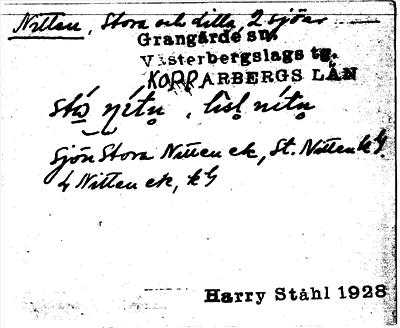 Nitten, Stora och Lilla, 2 sjöar
Grangärde sn.
Västerbergslags tg.
KOPPARBERGS LÄN
nítu̥, nítu̥
Sjön Stora Nitten ek, St. Nitten kG.
L Nitten ek, kG
Harry Ståhl 1928